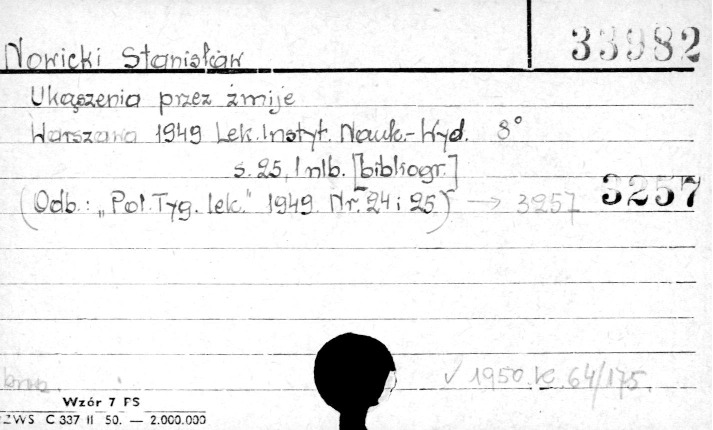 Nowicki Stanisław 33982
Ukąszenia przez żmije
Warszawa 1949 Lek. Instyt. Nauk.-Wyd. 8°
s. 25, 1 nlb. [bibliogr.]
(Odb.: „Pol. Tyg. lek." 1949. Nr. 24 i 25.) → 3257 3257
√ 1950. K. 64/175.
Wzór 7 FS
PZWS C 337 II 50. — 2.000.000